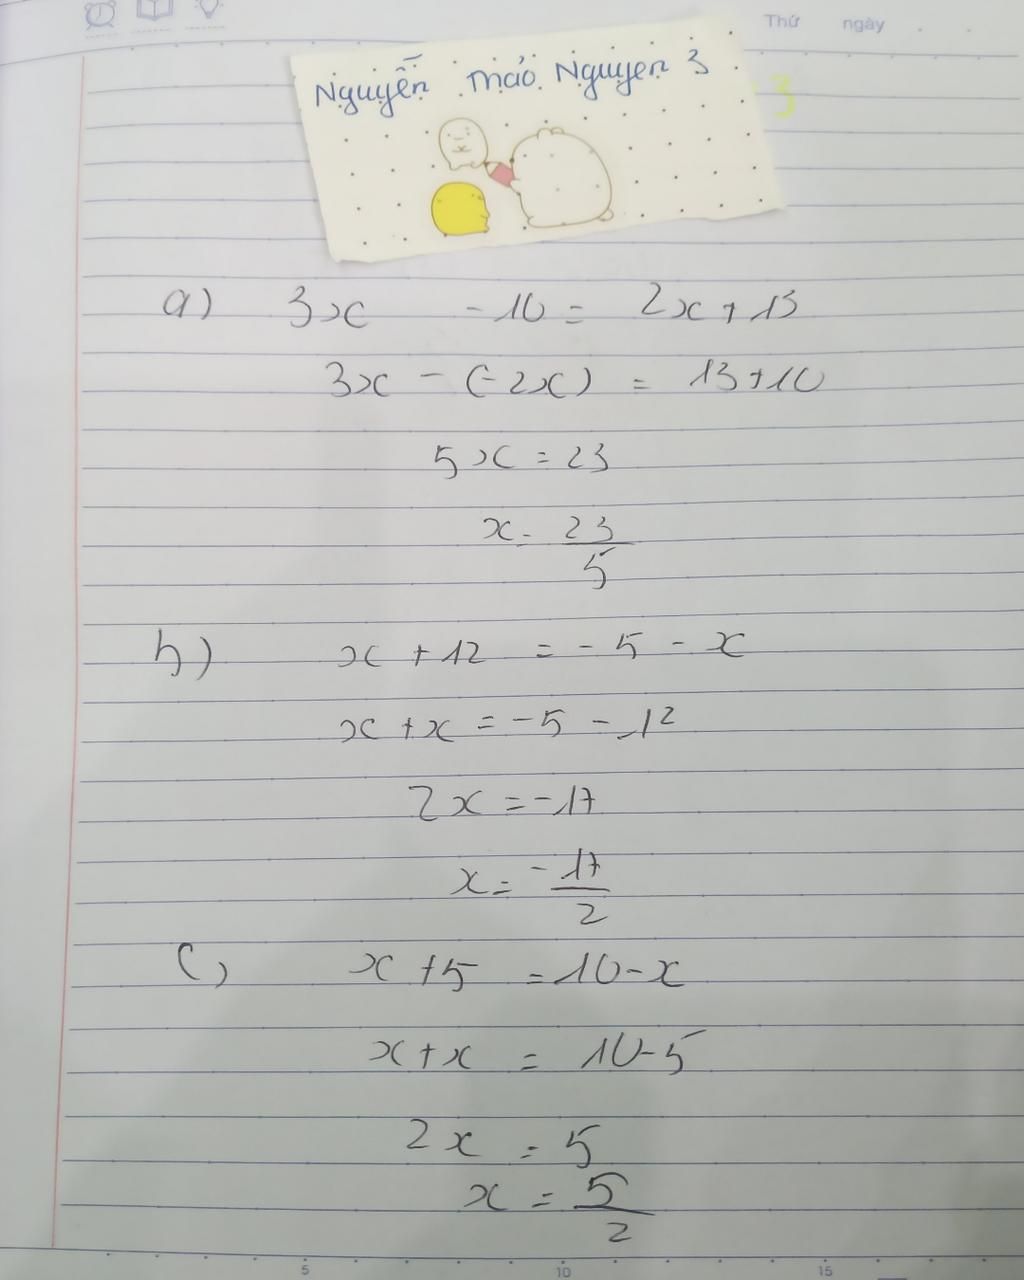 Thứ ngày
Nguyễn Thảo Nguyen 3
3
a) 3x - 10 = 2x + 13
3x - (-2x) = 13 + 10
5x = 23
x = 23/5
b) x + 12 = -5 - x
x + x = -5 - 12
2x = -17
x = -17/2
c) x + 5 = 10 - x
x + x = 10 - 5
2x = 5
x = 5/2
5 10 15